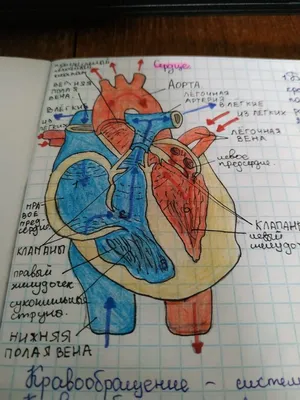 Сердце
ВЕРХНЯЯ
ПОЛАЯ
ВЕНА
АОРТА
ЛЁГОЧНАЯ
АРТЕРИЯ
В ЛЁГКИЕ
В ЛЁГКИЕ
ИЗ
ЛЁГКИХ
ИЗ ЛЁГКИХ
ЛЁГОЧНАЯ
ВЕНА
левое
предсердие
ПРА
ВОЕ
ПРЕД-
СЕРДИЕ
КЛАПАНЫ
КЛАПАНЫ
левый
желудочек
правый
желудочек
сухожильные
струны
НИЖНЯЯ
ПОЛАЯ ВЕНА
Кравообращение – систем